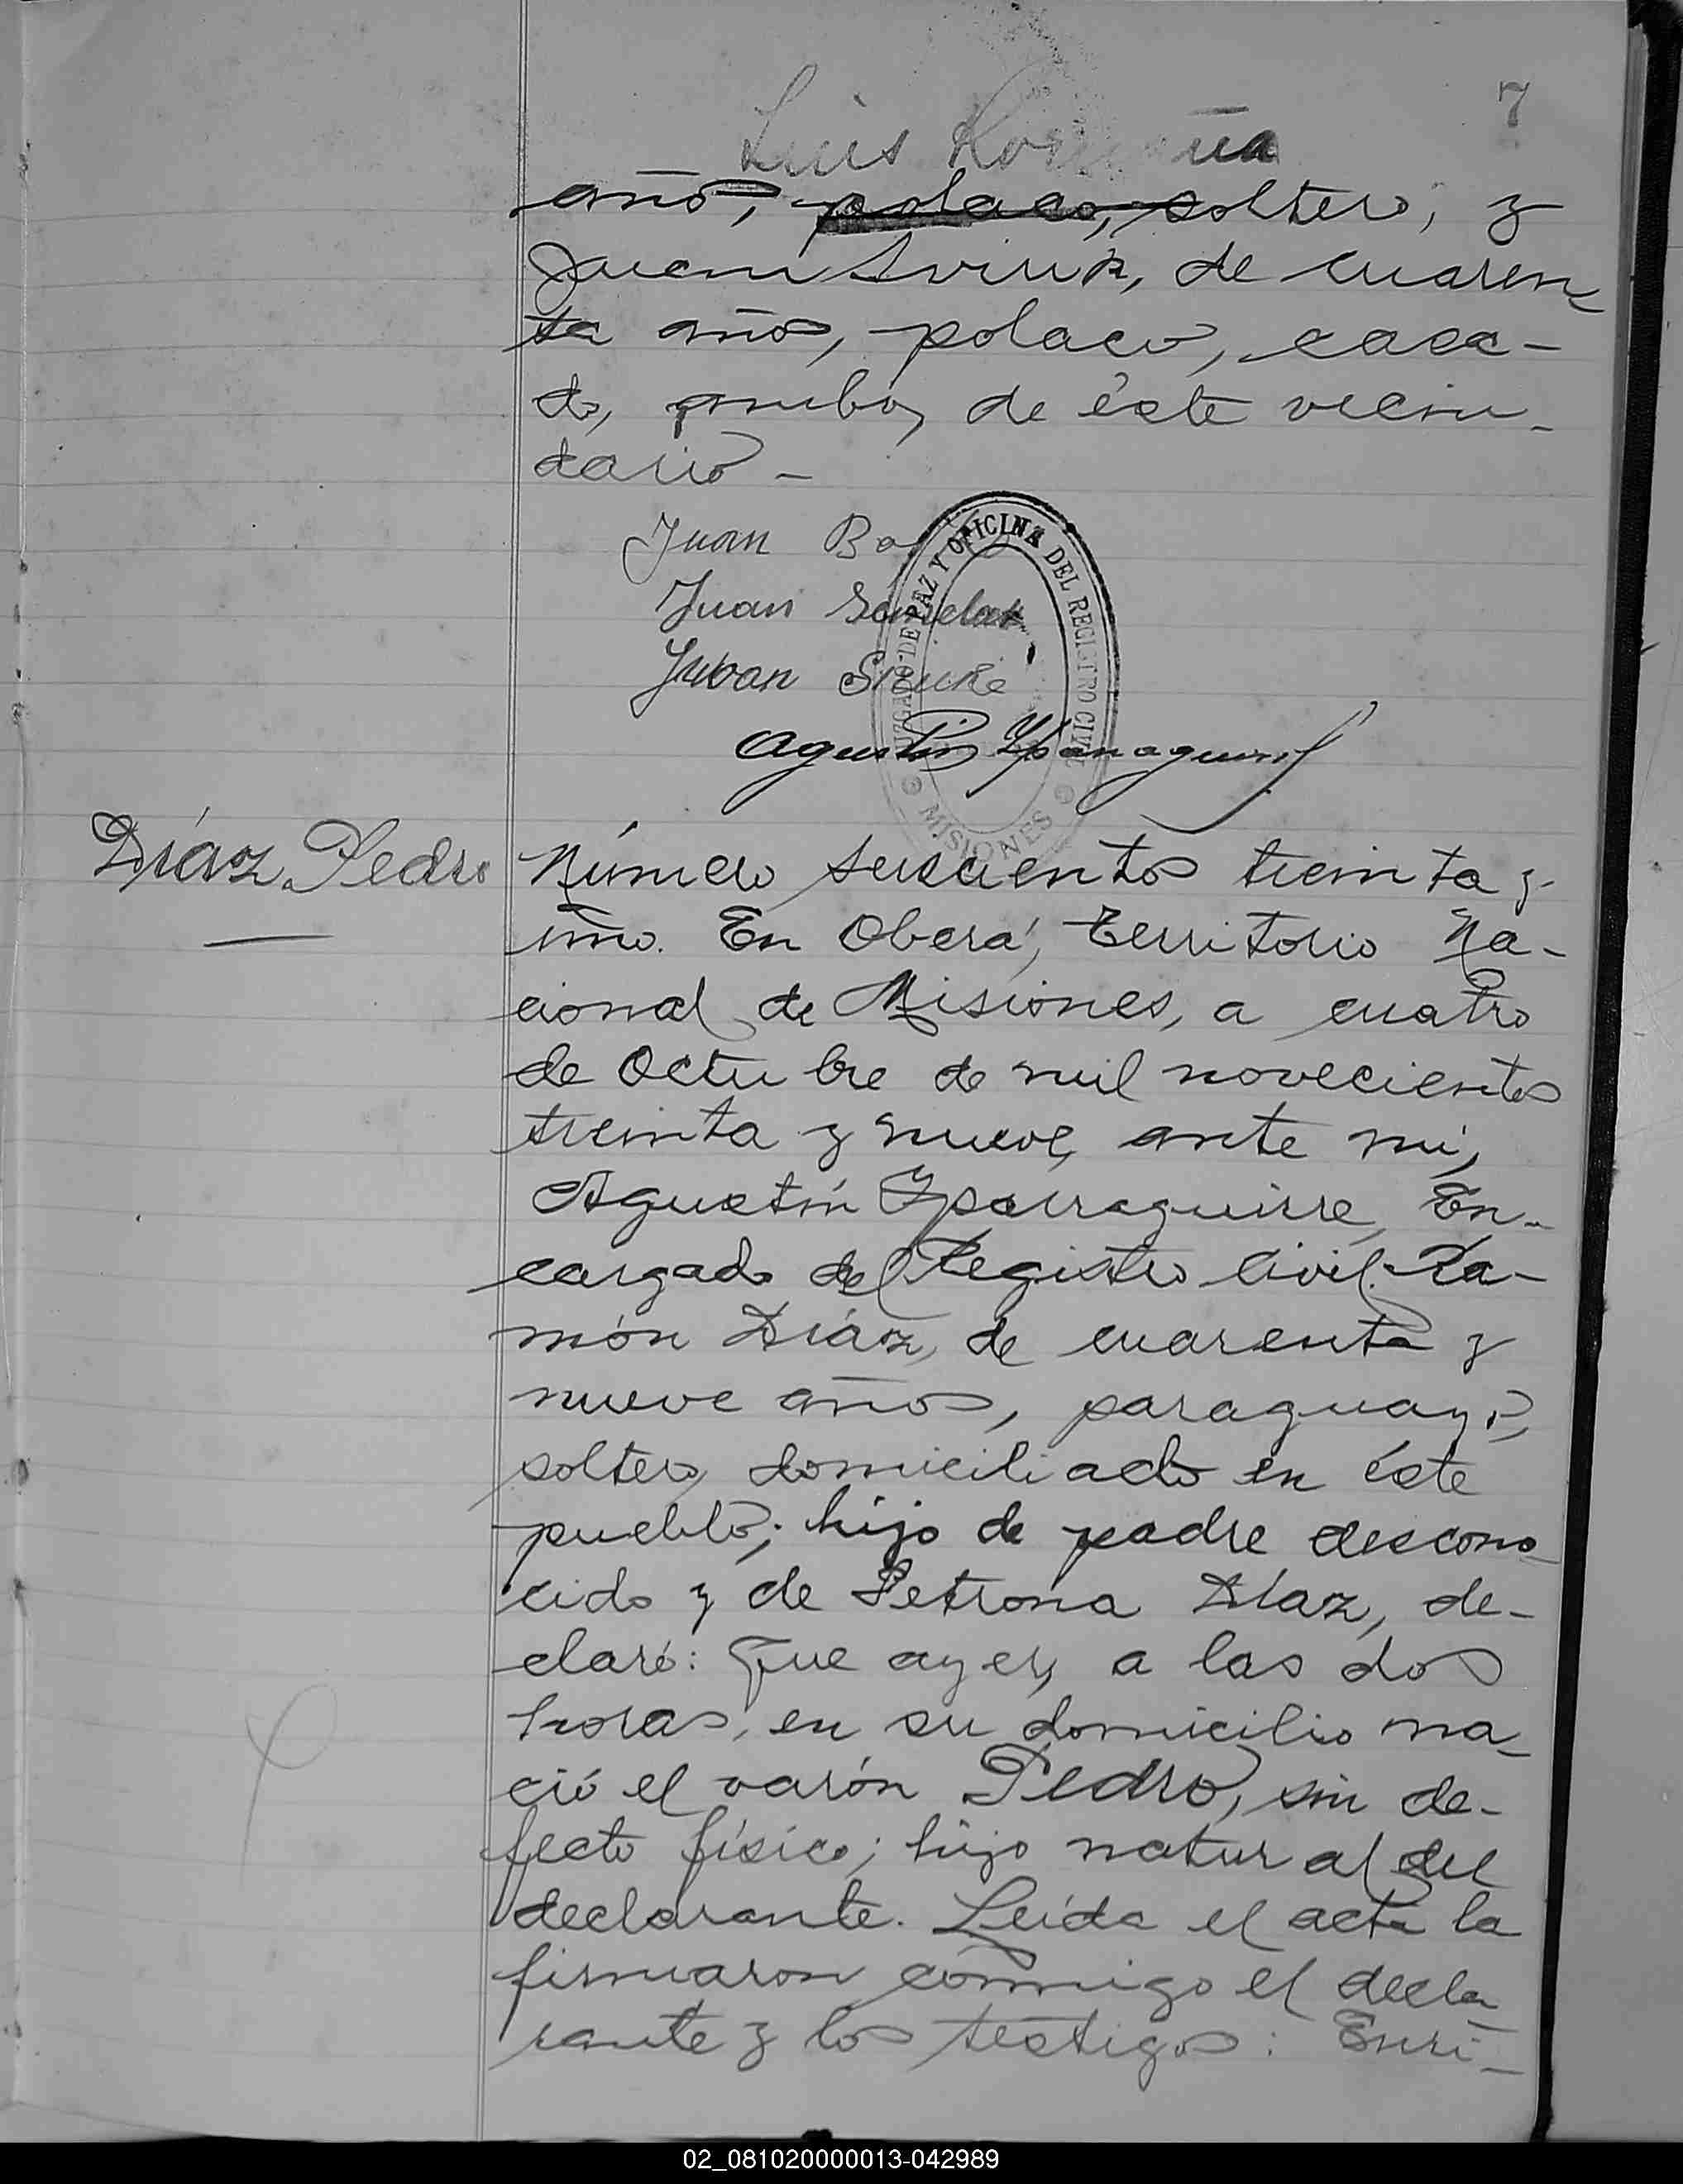 7
Luis
años, polaco, soltero, y
Juan , de cuaren
ta años, polaco, casa-
do, ambos de éste vecin-
dario -
Juan
Juan
Juan
JUZGADO DE PAZ Y OFICINA DEL REGISTRO CIVIL
MISIONES
Agustin Yparraguirre
Díaz Pedro
Número seiscientos treinta y
uno. En Oberá, territorio Na-
cional de Misiones, a cuatro
de Octubre de mil novecientos
treinta y nueve, ante mi,
Agustín Yparraguirre, En-
cargado del Registro Civil. Ra-
món Díaz, de cuarenta y
nueve años, paraguayo,
soltero, domiciliado en éste
pueblo; hijo de padre descono
cido y de Petrona Díaz, de-
claró: Que ayer, a las dos
horas, en su domicilio na-
ció el varón Pedro, sin de-
fecto físico; hijo natural del
declarante. Leída el acta la
firmaron conmigo el decla
rante y los testigos: Enri-
02_081020000013-042989